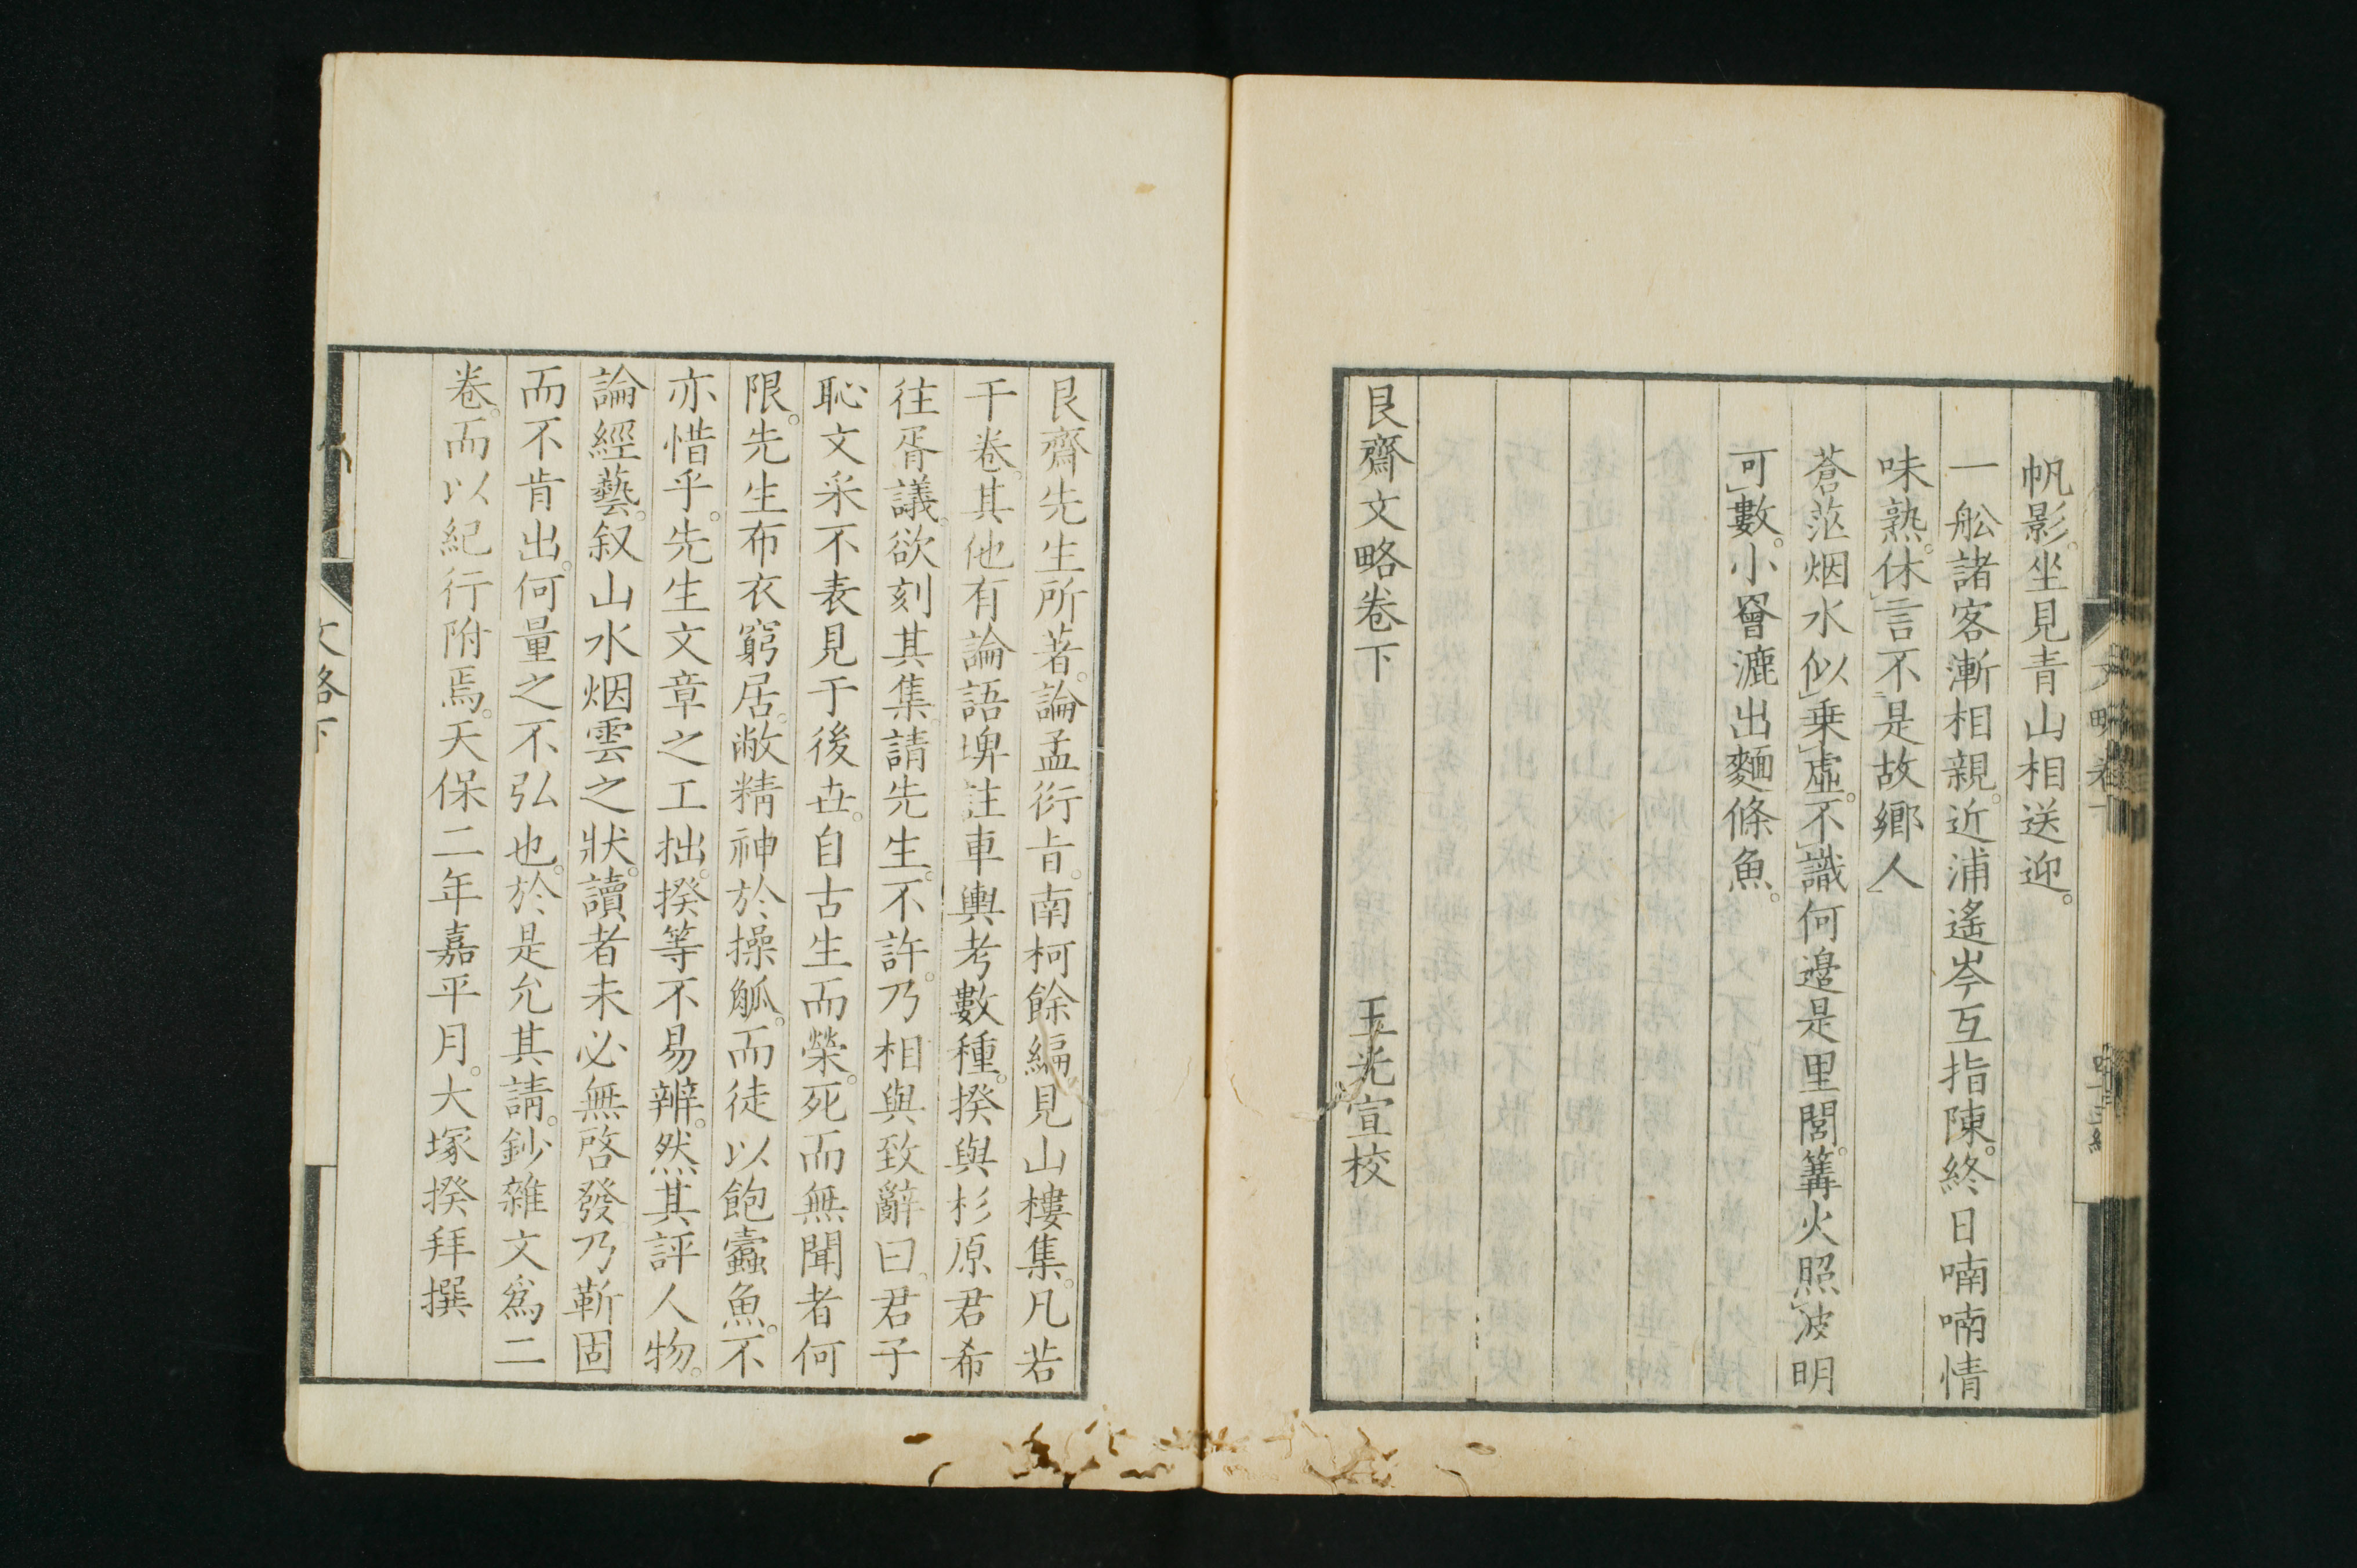 帆影。坐見青山相送迎。
一舩諸客漸相親。近浦遙岑互指陳。終日喃喃情
味熟。休言不是故鄉人
蒼茫烟水似乗虛。不識何邉是里閭。篝火照波明
可數。小罾漉出麵條魚。
艮齋文略卷下　　　王光宣校
艮齋先生所著。論孟衍旨。南柯餘編見山樓集。凡若
干卷。其他有論語埤註車輿考數種。揆與杉原君希
往胥議。欲刻其集。請先生。不許。乃相與致辭曰。君子
恥文采不表見于後世。自古生而榮。死而無聞者何
限。先生布衣窮居。敝精神於操觚。而徒以飽蠹魚。不
亦惜乎。先生文章之工拙。揆等不易辨。然其評人物。
論經藝。叙山水烟雲之狀。讀者未必無啓發乃靳固
而不肯出。何量之不弘也。於是允其請。鈔雜文爲二
卷。而以紀行附焉。天保二年嘉平月。大塚揆拜撰
文略下